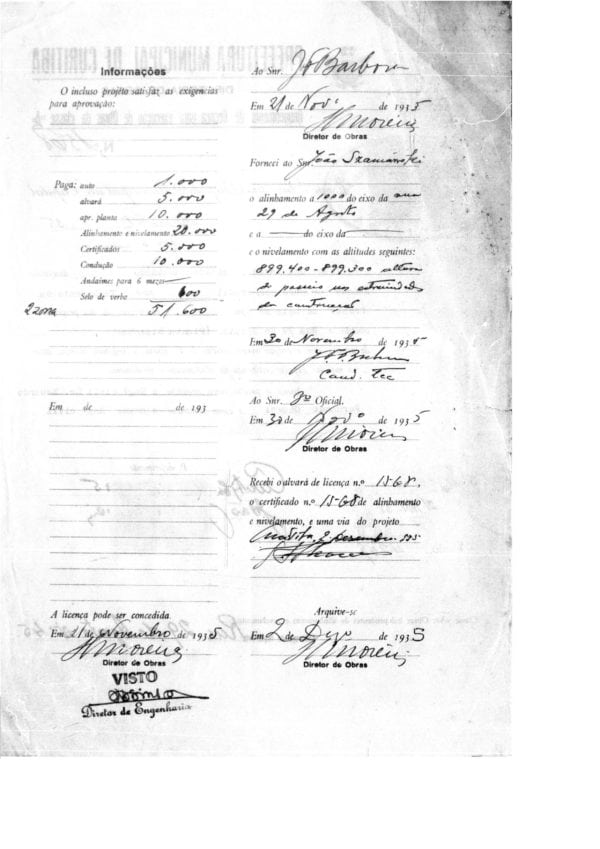 Informações
O incluso projéto satisfaz as exigencias
para aprovação:
Paga: auto 1.000
alvará 5.000
apr. planta 10.000
Alinhamento e nivelamento 20.000
Certificados 5.000
Condução 10.000
Andaimes para 6 mezes
Selo de verba 600
2 zona 51.600
Em ... de ... de 193
A licença pode ser concedida
Em 21 de Novembro de 1935
Diretor de Obras
VISTO
Diretor de Engenharia
Ao Snr. J Barbosa
Em 21 de Novº de 1935
Diretor de Obras
Forneci ao Snr. João Szamanski
o alinhamento a 1000 do eixo da rua
29 de Agosto
e a — do eixo da —
e o nivelamento com as altitudes seguintes:
899.400-899.300 altura
de passeio nas extremidades
da construção
Em 30 de Novembro de 1935
Cand. Tec
Ao Snr. 3º Oficial.
Em 30 de Novº de 1935
Diretor de Obras
Recebi o alvará de licença n.º 1568,
o certificado n.º 1568 de alinhamento
e nivelamento, e uma via do projéto
Curitiba, 2 Dezembro 935
Arquive-se
Em 2 de Dezº de 1935
Diretor de Obras